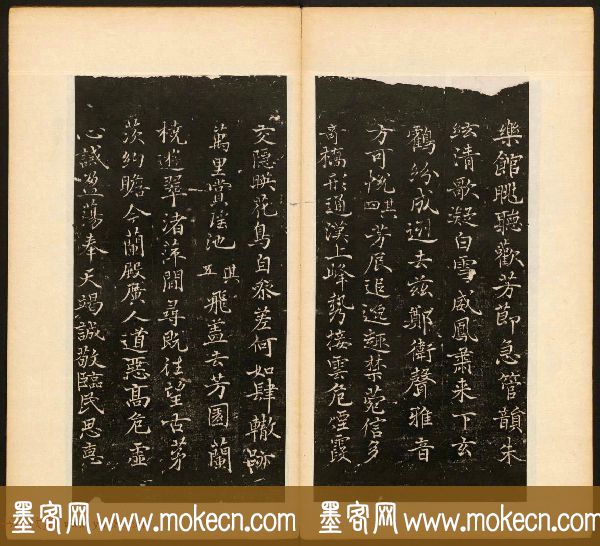 樂館眺聽歡芳節急管韻朱
絃清歌凝白雪威鳳肅来下玄
鶴紛成迾去兹鄭衛聲雅音
方可悅其四芳辰追逸趣禁苑信多
奇橋形通漢上峰勢接雲危煙霞
交隱映花鳥自叅差何如肆轍跡
萬里賞瑤池其五飛盖去芳園蘭
橈遊翠渚萍間尋既往望古茅
茨約瞻今蘭殿廣人道惡高危虛
心誡盈蕩奉天竭誠敬臨民思惠
墨客网 www.mokecn.com 墨客网 www.mokecn.com